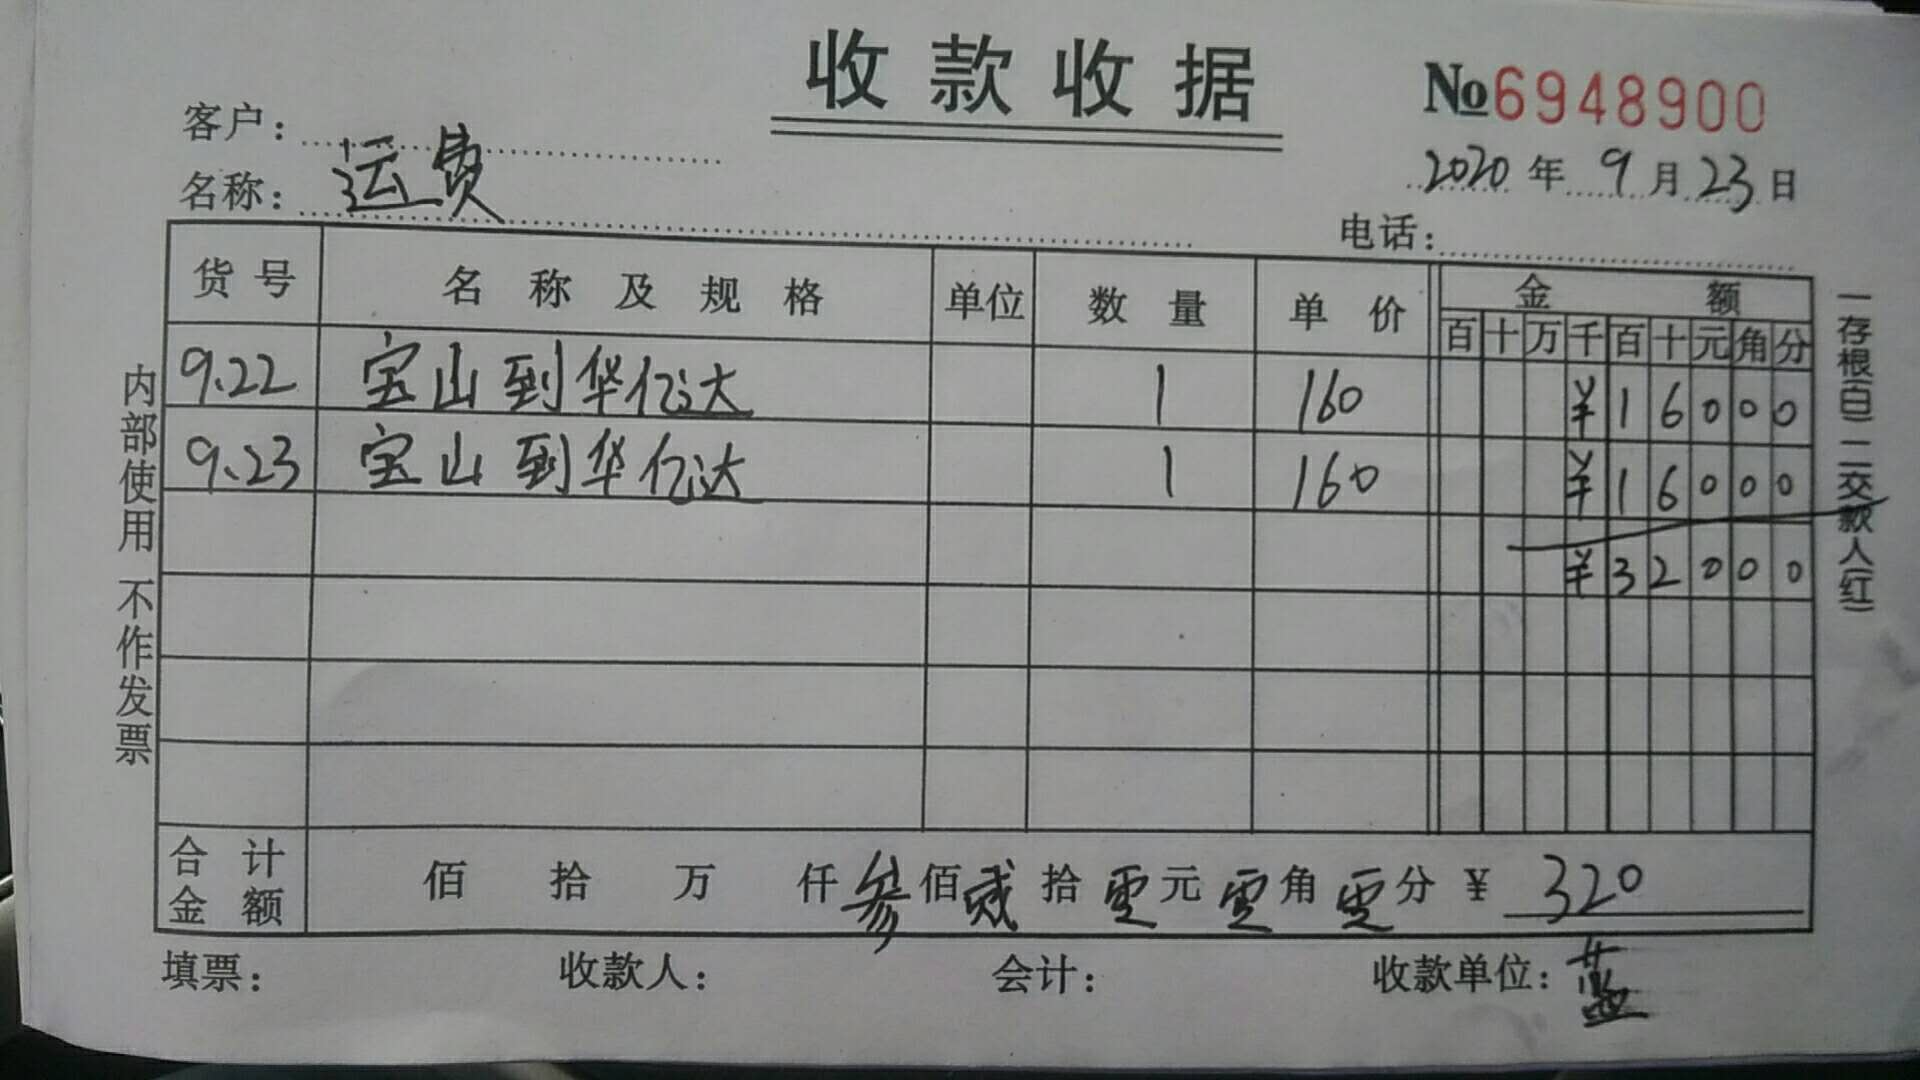 收款收据
No6948900
客户：
2020年9月23日
名称：运费
电话：
货号 名称及规格 单位 数量 单价 金额
百十万千百十元角分
9.22 宝山到华亿达 1 160 ¥16000
9.23 宝山到华亿达 1 160 ¥16000
¥32000
合计金额 佰 拾 万 仟叁佰贰拾零元零角零分 ¥320
填票： 收款人： 会计： 收款单位：蓝
内部使用 不作发票
一存根(白) 二交款人(红)